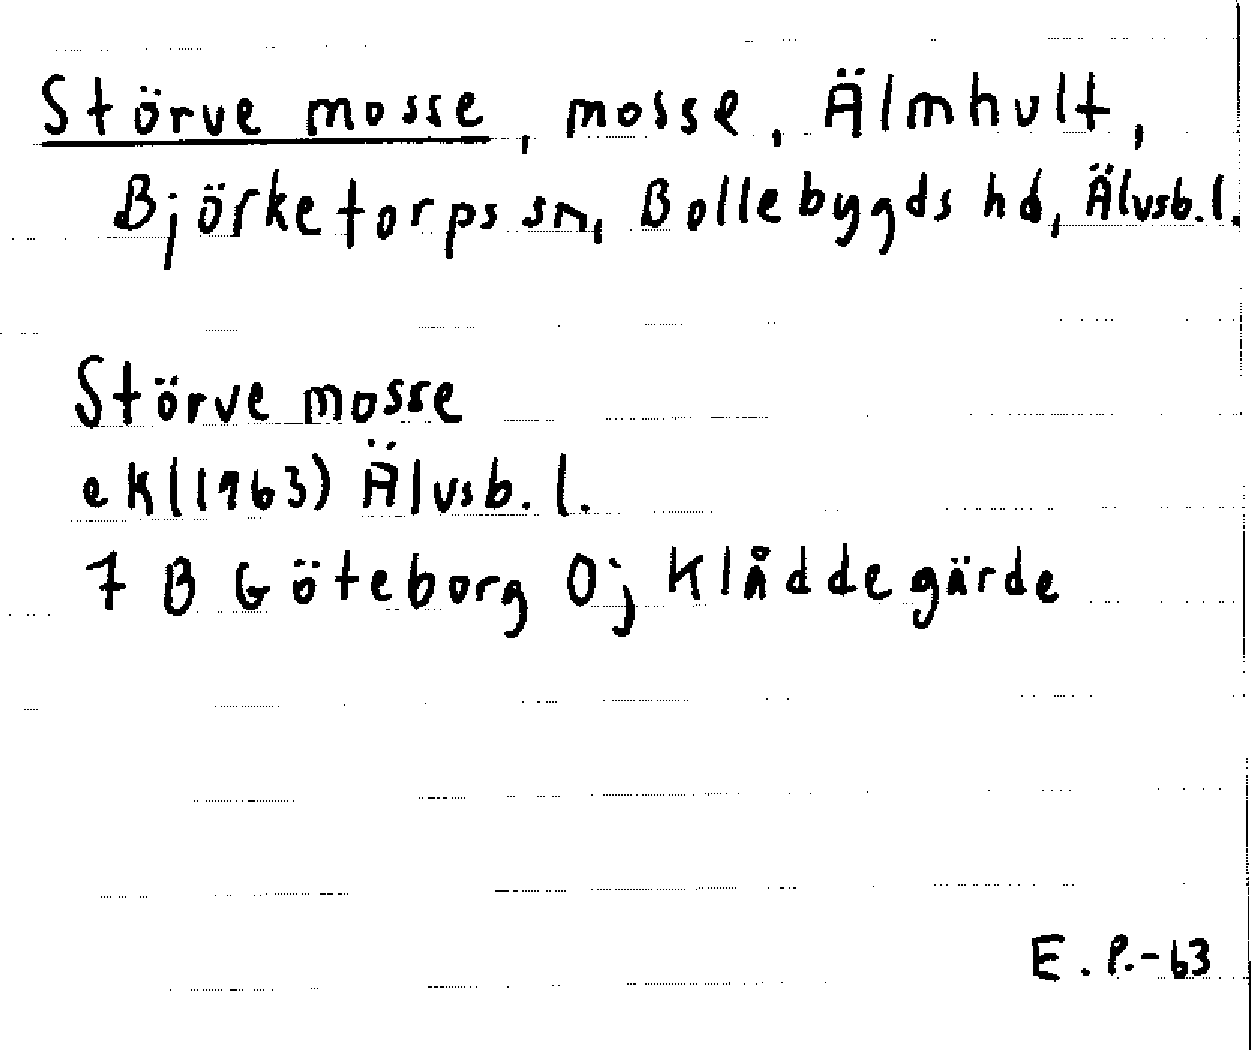 Störve mosse, mosse, Älmhult,
Björketorps sn, Bollebygds hd, Älvsb.l.
Störve mosse
eK(1963) Älvsb.l.
7 B Göteborg 0j Klåddegärde
E.P.-63